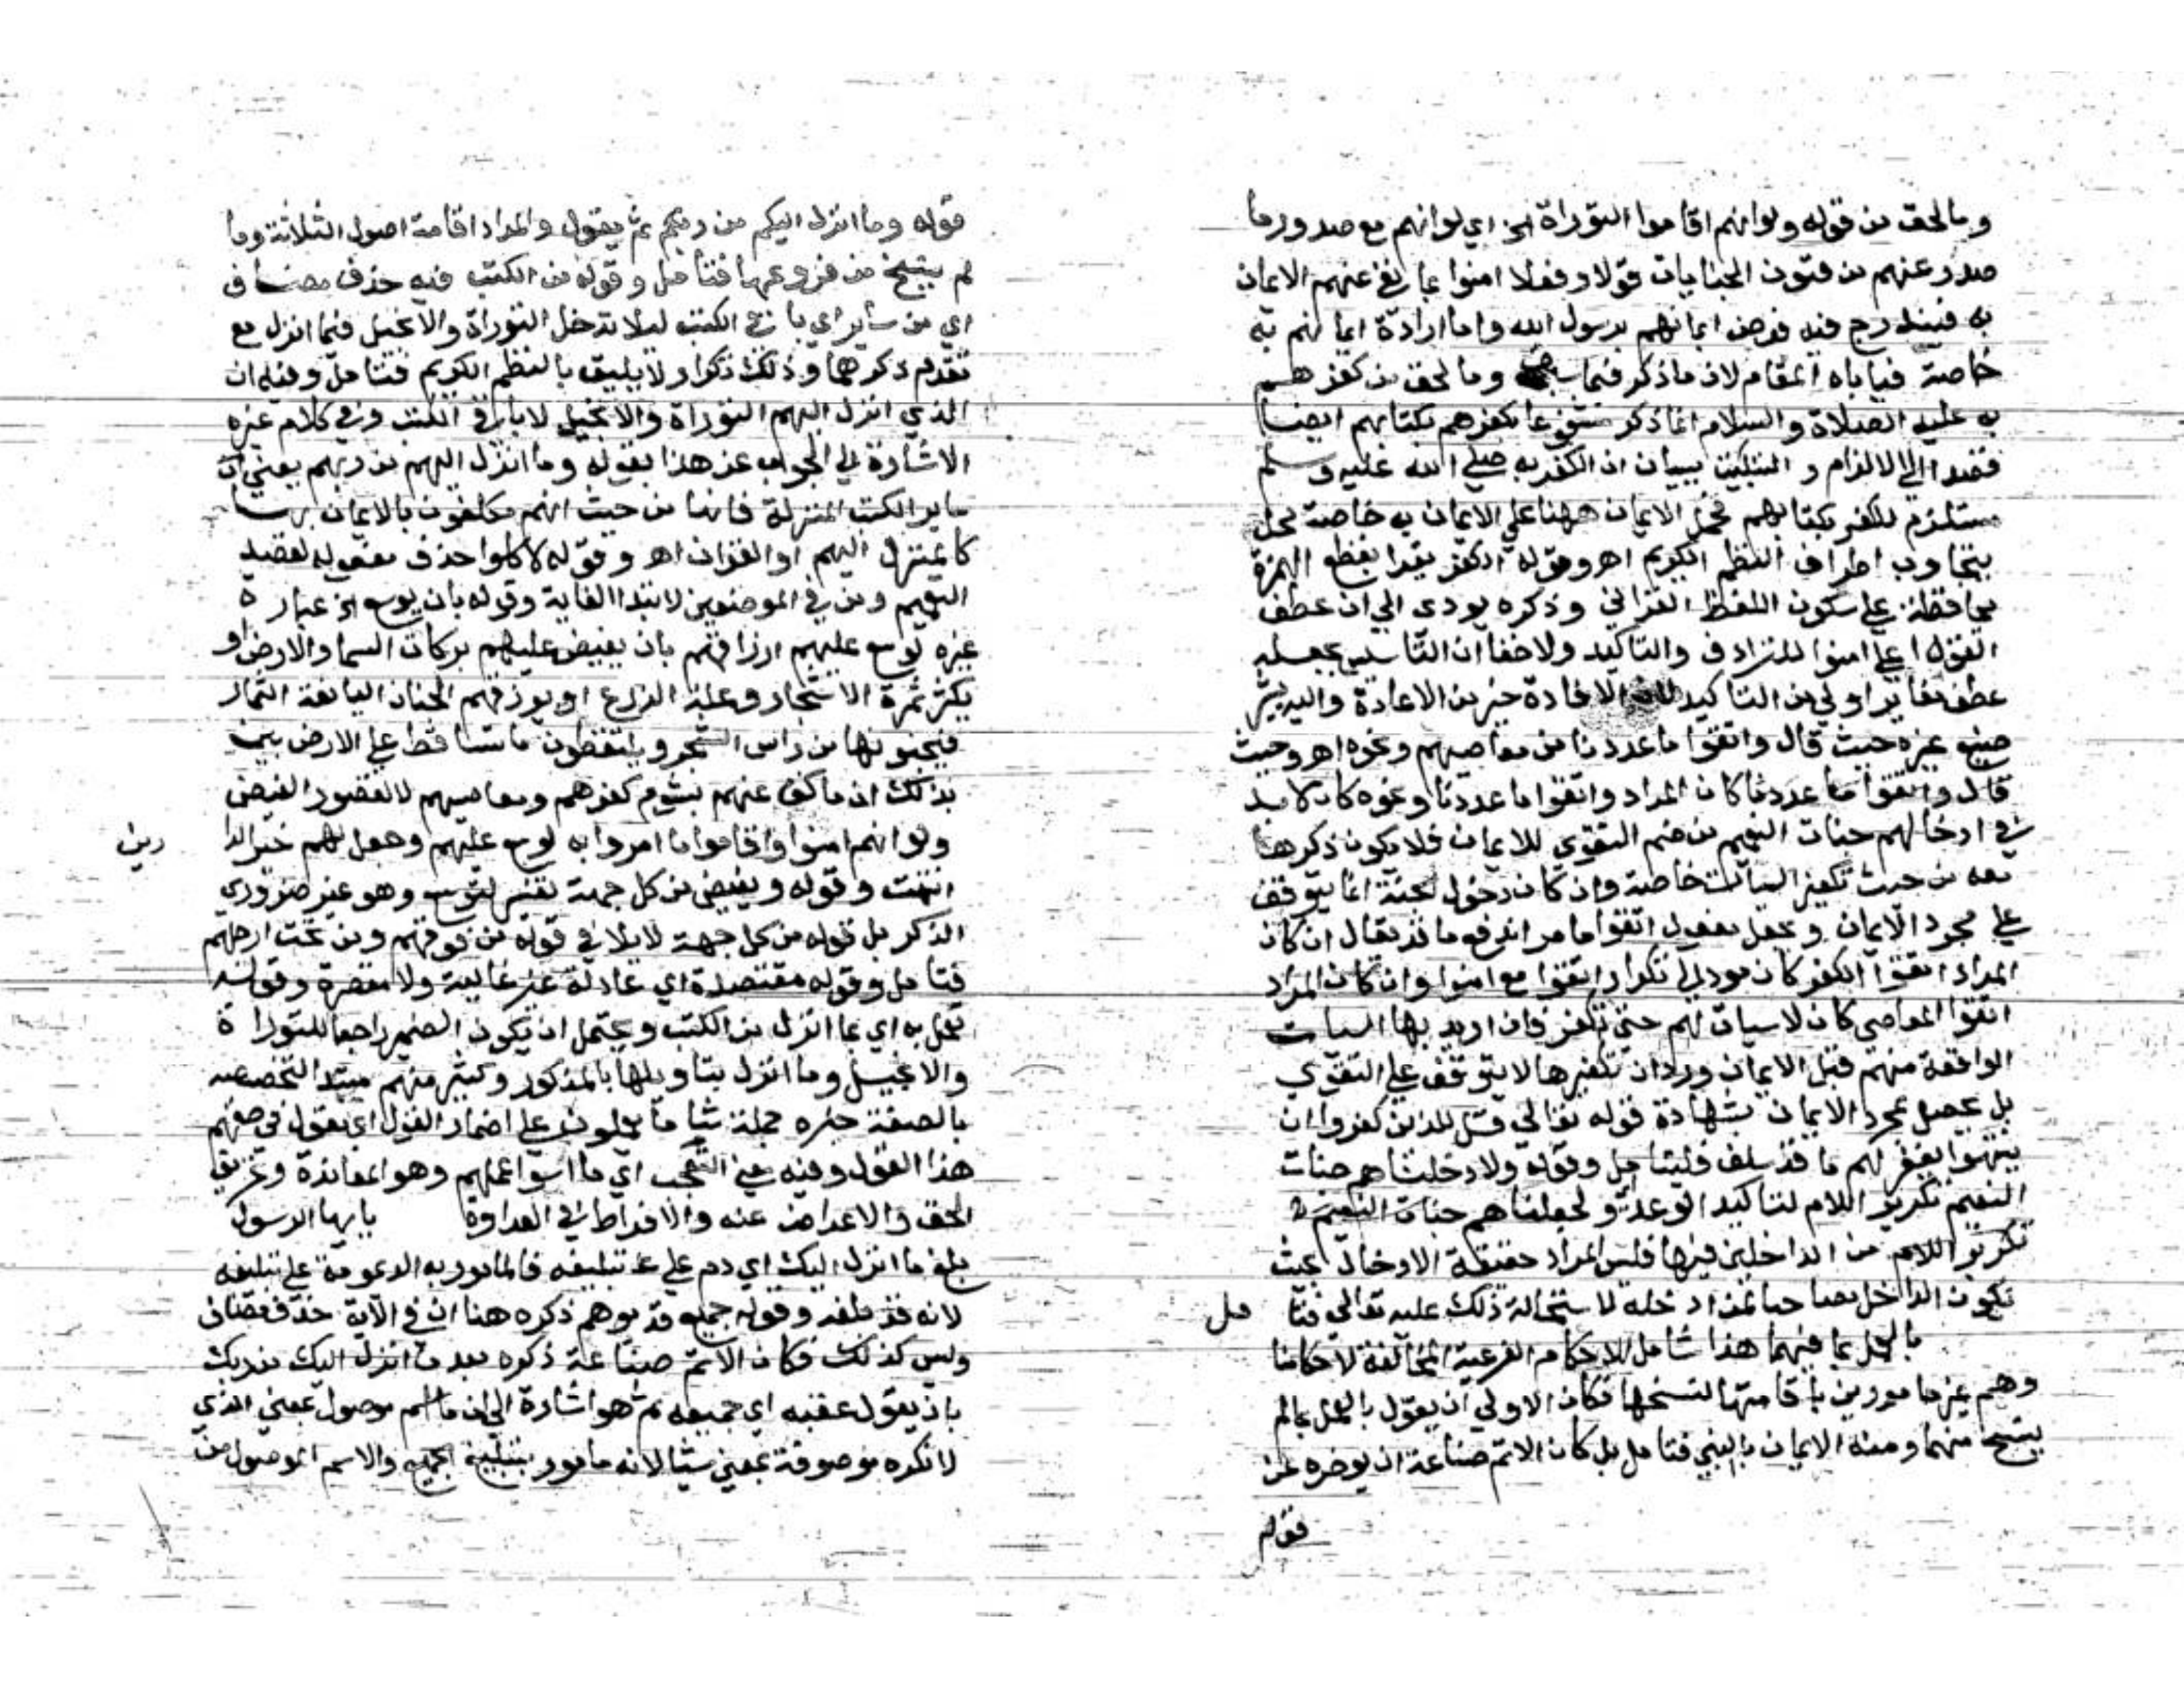 وما لحق من قوله ولو انهم اقاموا التوراة الخ اي لو انهم مع صدور ما
صدر عنهم من فنون الجنايات قولا وفعلا امنوا بما نفي عنهم الايمان
به فيندرج فيه فرض ايمانهم برسول الله واما ارادة ايمانهم به
خاصة فياباه المقام لان ما ذكر فيما سبق وما لحق من كفرهم
به عليه الصلاة والسلام انما ذكر مشفوعا بكفرهم بكتابهم ايضا
قصدا الي الالزام والتبكيت ببيان ان الكفر به صلي الله عليه وسلم
مستلزم للكفر بكتابهم فحمل الايمان ههنا علي الايمان به خاصة مخل
بتجاوب اطراف النظم الكريم اهـ وقوله الكفر يقرا بقطع الهمزة
محافظة علي سكون اللفظ القراني وذكره يودي الي ان عطف
اتقوا علي امنوا للترادف والتاكيد ولا خفا ان التاسيس بجعله
عطف تغاير اولي من التاكيد لان الافادة خير من الاعادة واليه يشير
صنيع غيره حيث قال واتقوا ما عددنا من معاصيهم ونحوه اهـ وحيث
قال واتقوا ما عددنا كان المراد واتقوا ما عددنا ونحوه كان لا بد
في ادخالهم جنات النعيم من ضم التقوي للايمان فلا يكون ذكرها
معه من حيث تكفير السيات خاصة وان كان دخول الجنة انما يتوقف
علي مجرد الايمان وبجعل مفعول اتقوا ما مر اندفع ما قد يقال ان كان
المراد اتقوا الكفر كان موديا لتكرار اتقوا مع امنوا وان كان المراد
اتقوا المعاصي كان لا سيات لهم حتي تكفر فان اريد بها السيات
الواقعة منهم قبل الايمان ورد ان تكفيرها لا يتوقف علي التقوي
بل يحصل بمجرد الايمان بشهادة قوله تعالي قل للذين كفروا ان
ينتهوا يغفر لهم ما قد سلف فليتامل وقوله ولادخلناهم جنات
النعيم تكرير اللام لتاكيد الوعد و لجعلناهم جنات النعيم
تكرير اللام من الداخلين فيها فليس المراد حقيقة الادخال بحيث
يكون الداخل مصاحبا لمن ادخله لاستحالة ذلك عليه تعالي فتا مل
بالعمل بما فيهما هذا شامل للاحكام الفرعية المخالفة لاحكامنا
وهم غير مامورين باقامتها لنسخها فكان الاولي ان يقول بالعمل بما لم
ينسخ منهما ومنه الايمان بالنبي فتامل بل كان الاتم صناعة ان يوخره عن
قوله
قوله وما انزل اليكم من ربكم ثم يقول والمراد اقامة اصول الثلاثة وما
لم ينسخ من فروعها فتامل وقوله من الكتب فيه حذف مضاف
اي من ساير اي باقي الكتب ليلا تدخل التوراة والانجيل فيما انزل مع
تقدم ذكرهما وذلك تكرار لا يليق بالنظم الكريم فتامل وفيه ان
الذي انزل اليهم التوراة والانجيل لا باقي الكتب وفي كلام غيره
الاشارة الي الجواب عن هذا بقوله وما انزل اليهم من ربهم يعني ان
ساير الكتب المنزلة فانها من حيث انهم مكلفون بالايمان بها
كالمنزل اليهم او القران اهـ وقوله لاكلوا حذف مفعوله لقصد
التعميم ومن في الموضعين لابتدا الغاية وقوله بان يوسع الخ عبارة
غيره لوسع عليهم ارزاقهم بان يفيض عليهم بركات السما والارض او
يكثر ثمرة الاشجار وغلة الزرع او يرزقهم الجنان اليانعة الثمار
فيجنونها من راس الشجر ويلتقطون ما تساقط علي الارض بين
بذلك ان ما كف عنهم بشوم كفرهم ومعاصيهم لا لقصور الفيض
ولو انهم امنوا واقاموا ما امروا به لوسع عليهم وجعل لهم خير الدا
رين
انتهت وقوله ويفيض من كل جهة تفسير ليوسع وهو غير ضروري
الذكر بل قوله من كل جهة لا يلاقي قوله من فوقهم ومن تحت ارجلهم
فتامل وقوله مقتصدة اي عادلة غير غالية ولا مقصرة وقوله
تعمل به اي بما انزل من الكتب ويحتمل ان يكون الضمير راجعا للتوراة
والانجيل وما انزل بتاويلها بالمذكور وكثير منهم مبتدا لتخصيصه
بالصفة خبره جملة سا ما يعملون علي اضمار القول اي يقول في حقهم
هذا القول وفيه معني التعجب اي ما اسوا عملهم وهو المعاندة وتحريف
الحق والاعراض عنه والافراط في العداوة يايها الرسول
بلغ ما انزل اليك اي دم علي تبليغه فالمامور به الديمومة علي تبليغه
لانه قد بلغه وقوله جميع قد يوهم ذكره هنا ان في الاية حذف مضاف
وليس كذلك فكان الاتم صناعة ذكره بعد ما انزل اليك من ربك
بان يقول عقبه اي جميعه ثم هو اشارة الي ان ما اسم موصول بمعني الذي
لا نكرة موصوفة بمعني شيا لانه مامور بتبليغ الجميع والاسم الموصول من